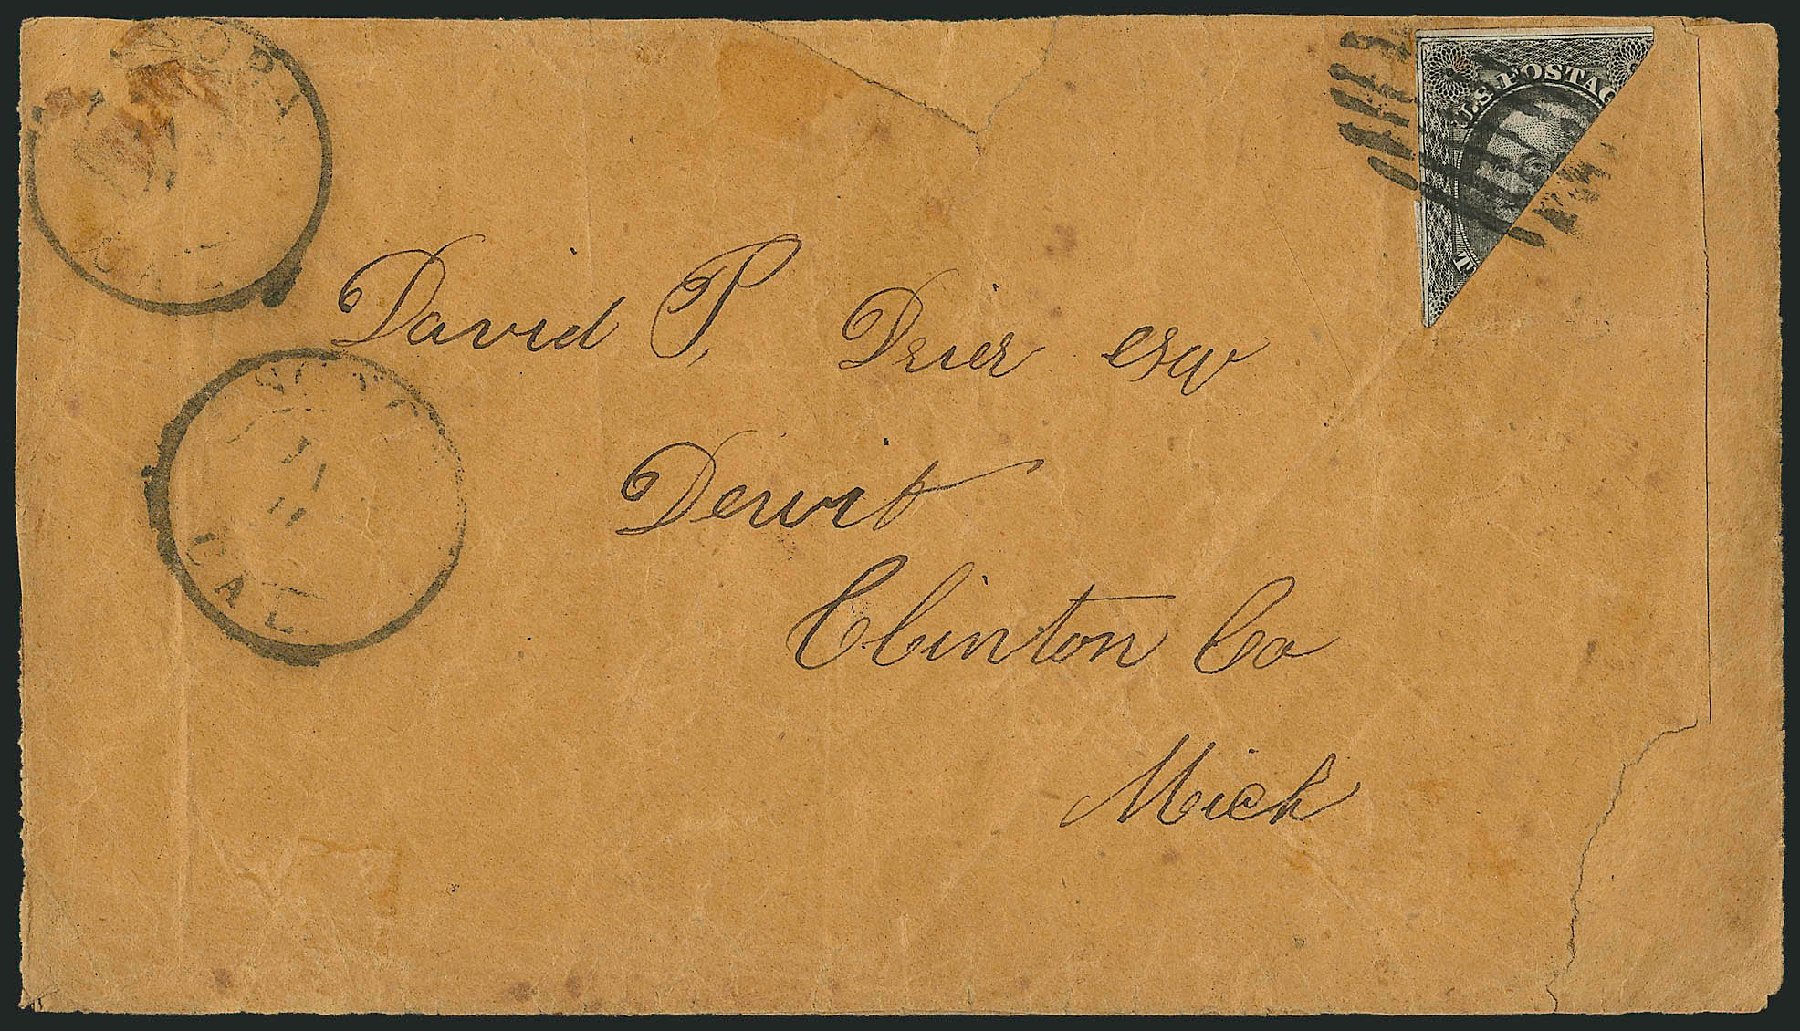 SONORA
CAL
U.S. POSTAG
David P. Drier esqr
Dewit
Clinton Co
Mich
CAL